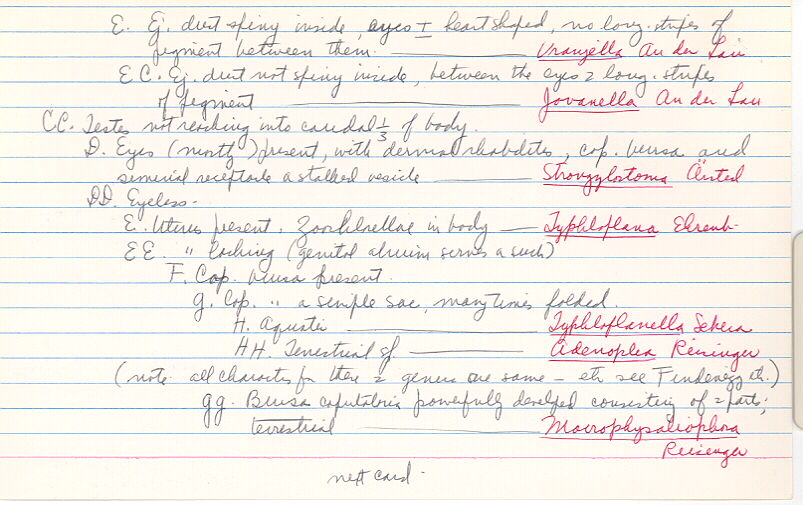 E. Ej. duct spiny inside, eyes ± heart shaped, no long. stripes of
pigment between them. Uranjella An der Lan
EE. Ej. duct not spiny inside, between the eyes 2 long. stripes
of pigment Jovanella An der Lan
CC. Testes not reaching into caudal 1/3 of body.
D. Eyes (mostly) present, with dermal rhabdites, cop. bursa and
seminal receptacle a stalked vesicle Strongylostoma Örsted
DD. Eyeless -
E. Uterus present. Zoochlorellae in body Typhloplana Ehrenb.
EE. " lacking (genital atrium serves as such)
F. Cop. bursa present.
G. Cop. " a simple sac, many times folded.
H. Aquatic Typhloplanella Sekera
HH. Terrestrial sf. Adenoplea Reisinger
(note all characters for these 2 genera are same - etc see Findenegg etc.)
gg. Bursa copulatrix powerfully developed consisting of 2 parts;
terrestrial Macrophysaliophora
Reisinger
next card -